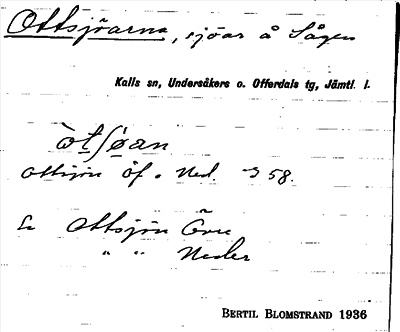 Ottsjöarna, sjöar å Sågen
Kalls sn, Undersåkers o. Offerdals tg, Jämtl. l.
òtʃøan
Ottsjön Öf. o. Ned. 58.
Se Ottsjön Övre
" " Neder
BERTIL BLOMSTRAND 1936